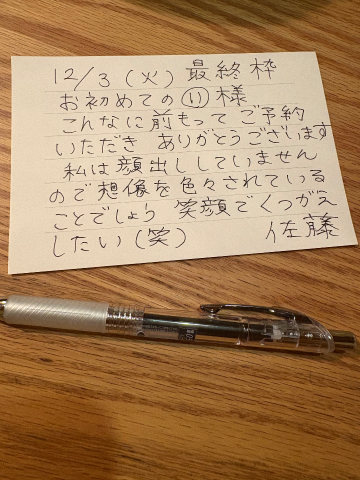 12/3(火) 最終枠
お初めての(い)様
こんなに前もってご予約
いただき ありがとうございます
私は顔出ししていません
ので想像を色々されている
ことでしょう 笑顔でくつがえ
したい(笑) 佐藤